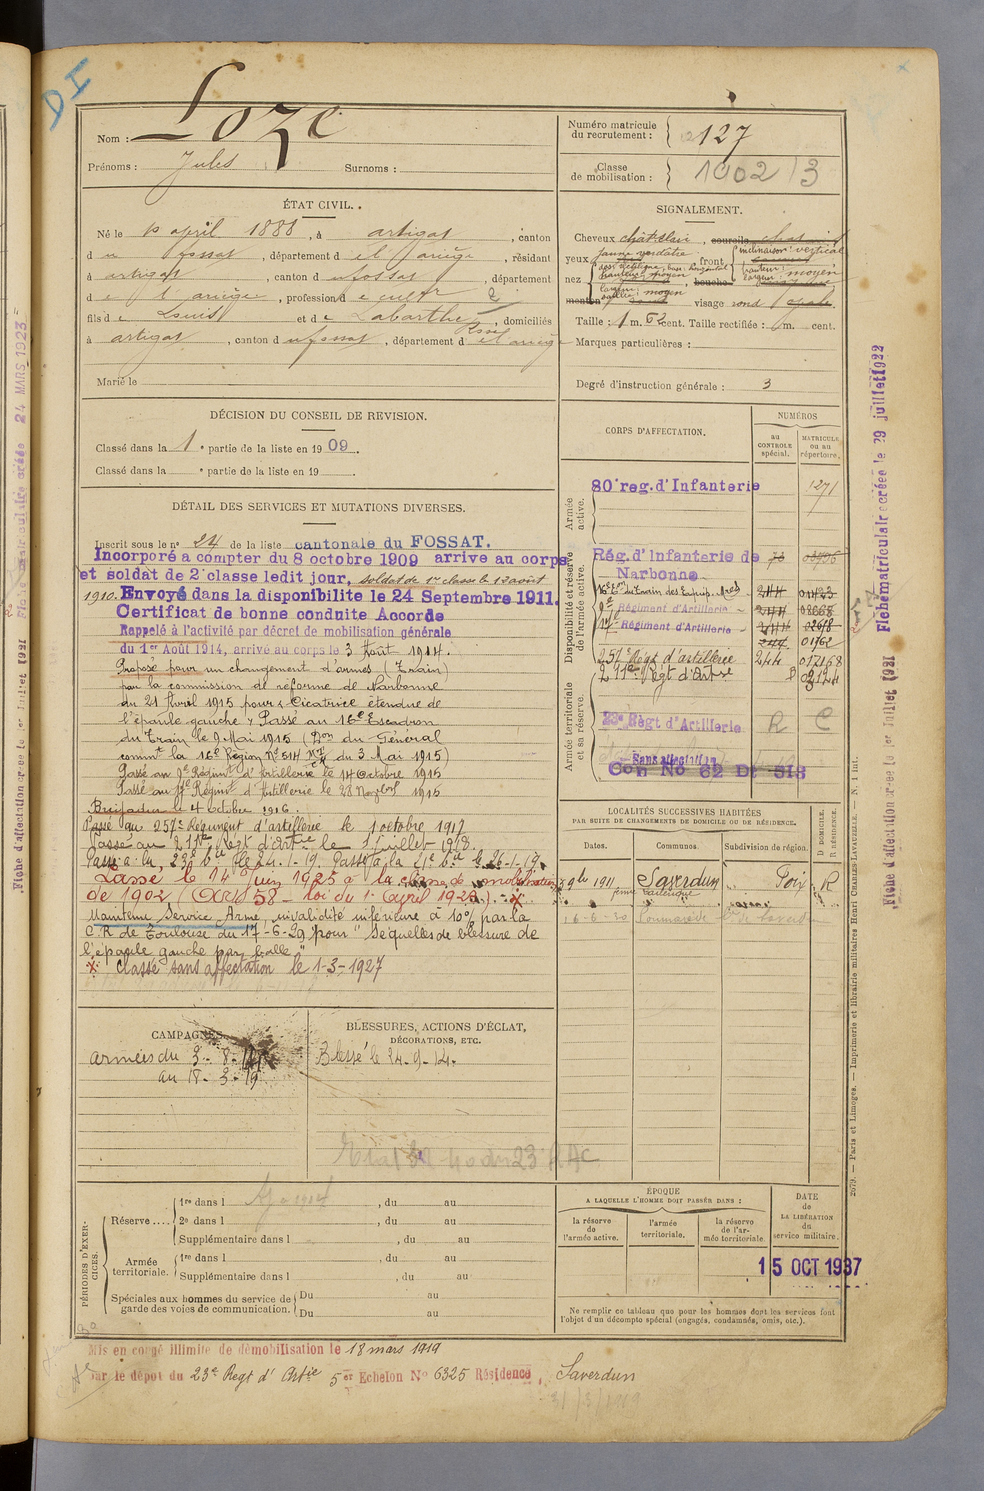 DI
Nom : Loze
Prénoms : Jules Surnoms :
Numéro matricule du recrutement : 127
Classe de mobilisation : 1902/3
ÉTAT CIVIL.
Né le 10 april 1888, à artigat, canton
du fossat, département de l'ariège, résidant
à artigat, canton du fossat, département
de l'ariège, profession de cultr 2
fils de Louis et de Labarthe Rose, domiciliés
à artigat, canton du fossat, département de l'ariège
Marié le
SIGNALEMENT.
Cheveux chât-clair, sourcils
yeux jaune verdâtre front inclinaison: vertical
hauteur: moyen
nez
bouche
menton visage rond ovale
Taille : 1 m. 62 cent. Taille rectifiée : 1 m. cent.
Marques particulières :
Degré d'instruction générale : 3
DÉCISION DU CONSEIL DE REVISION.
Classé dans la 1e partie de la liste en 1909.
Classé dans la e partie de la liste en 19
DÉTAIL DES SERVICES ET MUTATIONS DIVERSES.
Inscrit sous le no 24 de la liste cantonale du FOSSAT.
Incorporé a compter du 8 octobre 1909 arrive au corps
et soldat de 2e classe ledit jour, soldat de 1re classe le 12 août
1910. Envoyé dans la disponibilite le 24 Septembre 1911.
Certificat de bonne conduite Accorde
Rappelé à l'activité par décret de mobilisation générale
du 1er Août 1914, arrivé au corps le 3 Août 1914.
Proposé pour un changement d'armes (Train)
par la commission de réforme de Narbonne
du 21 Avril 1915 pour "Cicatrice étendue de
l'épaule gauche" Passé au 16e Escadron
du Train le 9 Mai 1915 (Don du Général
commt la 16e Région No 514 du 3 Mai 1915)
Passé au 9e Régimt d'Artillerie le 14 Octobre 1915
Passé au Régimt d'Artillerie le 28 1915
Brigadier le 4 octobre 1916.
Passé au 257e Régiment d'artillerie le 1 octobre 1917
Passé au 211e Régt d'artie le 1 juillet 1918.
Passé à la 23e bie le 24-1-19. Passé à la 21e bie le 26-1-19
Passé le 14 Juin 1925 à la classe de mobilisation
de 1902 (Art 58 - loi du 1er avril 1923). X
Maintenu Service Armé, invalidité inférieure à 10% par la
C.R. de Toulouse du 17-6-29 pour "Séquelles de blessure de
l'épaule gauche par balle"
X Classé sans affectation le 1-3-1927
CORPS D'AFFECTATION.
NUMÉROS
au CONTROLE spécial.
MATRICULE ou au répertoire.
Armée active.
80e reg. d'Infanterie 1271
Disponibilité et réserve de l'armée active.
Rég. d'Infanterie de Narbonne
16e Eson du Train des Equip. 244 01423
9e Régiment d'Artillerie 244 08668
Régiment d'Artillerie 244 02618
244 01962
257e Régt d'artillerie 244 017168
211e Régt d'Artie
Armée territoriale et sa réserve.
23e Règt d'Artillerie R C
Sans affectation
Con No 62 D: SIS
LOCALITÉS SUCCESSIVES HABITÉES
PAR SUITE DE CHANGEMENTS DE DOMICILE OU DE RÉSIDENCE.
Dates.
Communes.
Subdivision de région.
D DOMICILE. R RÉSIDENCE.
9bre 1911 Saverdun Foix R
16-6-30
CAMPAGNES
armées du 3-8-14
au 18-3-19
BLESSURES, ACTIONS D'ÉCLAT,
DÉCORATIONS, ETC.
Blessé le 24-9-14.
PÉRIODES D'EXERCICES.
Réserve.... 1re dans l , du au
2e dans l , du au
Supplémentaire dans l , du au
Armée territoriale. 1re dans l , du au
Supplémentaire dans l , du au
Spéciales aux hommes du service de garde des voies de communication. Du au
Du au
ÉPOQUE
A LAQUELLE L'HOMME DOIT PASSER DANS :
la réserve de l'armée active.
l'armée territoriale.
la réserve de l'armée territoriale.
DATE de LA LIBÉRATION du service militaire.
15 OCT 1937
Ne remplir ce tableau que pour les hommes dont les services font
l'objet d'un décompte spécial (engagés, condamnés, omis, etc.).
Mis en congé illimité de démobilisation le 18 mars 1919
par le dépot du 23e Regt d'Artie 5er Echelon No 6325 Résidence, Saverdun
Fiche matriculaire créée le 29 juillet 1922
Fiche d'affectation créée le 1er Juillet 1921
2079. — Paris et Limoges. — Imprimerie et librairie militaires Henri CHARLES-LAVAUZELLE. — N. 1 int.
Fiche matriculaire créée 24 MARS 1923
Fiche d'affectation créée le 1er Juillet 1921